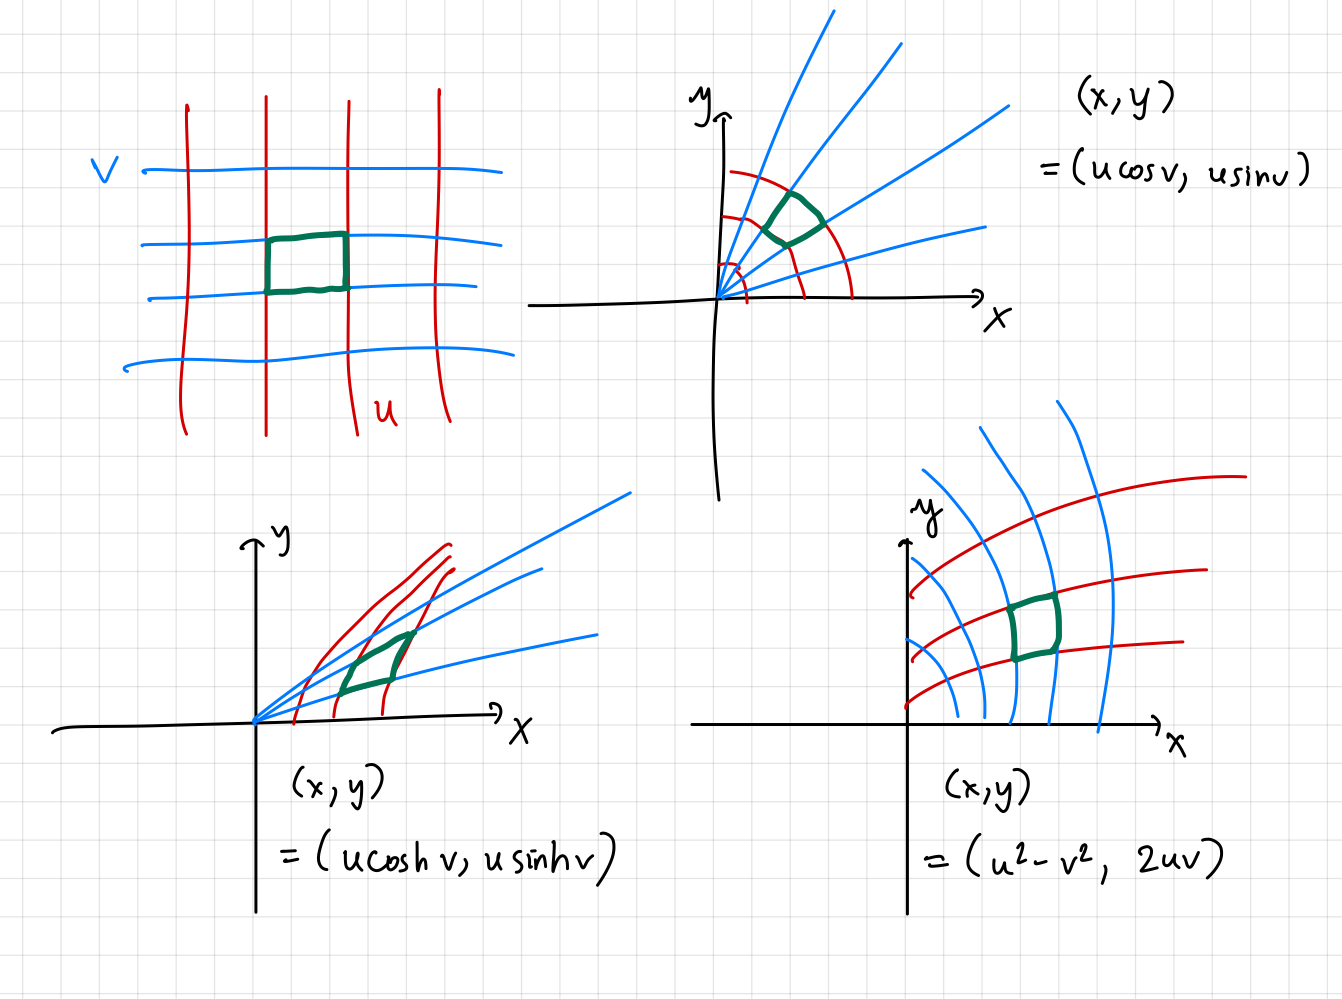 V
u
y
x
(x, y)
= (u cos v, u sin v)
y
x
(x, y)
= (u cosh v, u sinh v)
y
x
(x, y)
= (u² - v², 2uv)